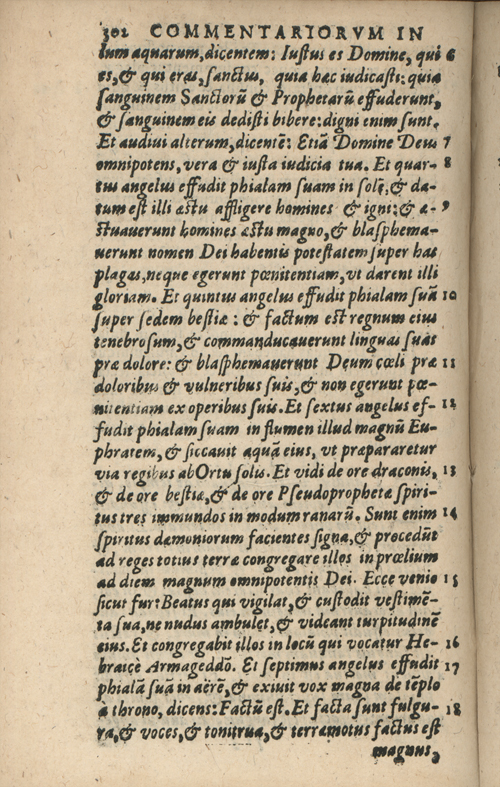 302 COMMENTARIORVM IN
lum aquarum, dicentem: Iuſtus es Domine, qui 6
es, & qui eras, ſanctus, quia hæc iudicaſti: quia
ſanguinem Sanctorū & Prophetarū effuderunt,
& ſanguinem eis dediſti bibere: digni enim ſunt.
Et audiui alterum, dicentē: Etiā Domine Deus 7
omnipotens, vera & iuſta iudicia tua. Et quar- 8
tus angelus effudit phialam ſuam in ſolē, & da-
tum eſt illi æſtu affligere homines & igni: & æ- 9
ſtuauerunt homines æſtu magno, & blaſphema-
uerunt nomen Dei habentis poteſtatem ſuper has
plagas, neque egerunt pœnitentiam, vt darent illi
gloriam. Et quintus angelus effudit phialam ſuā 10
ſuper ſedem beſtiæ: & factum eſt regnum eius
tenebroſum, & commanducauerunt linguas ſuas
præ dolore: & blaſphemauerunt Deum cœli præ 11
doloribus & vulneribus ſuis, & non egerunt pœ-
nitentiam ex operibus ſuis. Et ſextus angelus ef- 12
fudit phialam ſuam in flumen illud magnū Eu-
phratem, & ſiccauit aquā eius, vt præpararetur
via regibus ab Ortu ſolis. Et vidi de ore draconis, 13
& de ore beſtiæ, & de ore Pſeudoprophetæ ſpiri-
tus tres immundos in modum ranarū. Sunt enim 14
ſpiritus dæmoniorum facientes ſigna, & procedūt
ad reges totius terræ congregare illos in prœlium
ad diem magnum omnipotentis Dei. Ecce venio 15
ſicut fur: Beatus qui vigilat, & cuſtodit veſtimē-
ta ſua, ne nudus ambulet, & videant turpitudinē
eius. Et congregabit illos in locū qui vocatur He- 16
braicè Armageddō. Et ſeptimus angelus effudit 17
phialā ſuā in aërē, & exiuit vox magna de tēplo
a throno, dicens: Factū eſt. Et facta ſunt fulgu- 18
ra, & voces, & tonitrua, & terræmotus factus eſt
magnus,